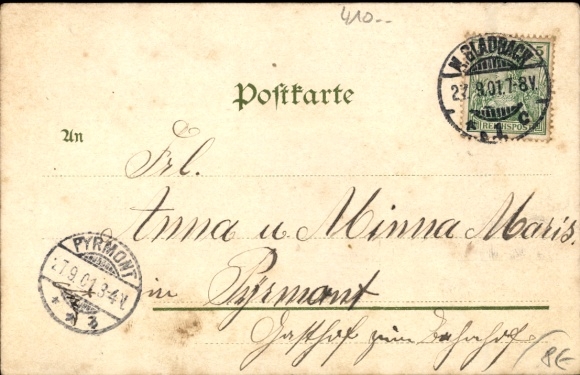 410.-
M. GLADBACH
5
27.9.01.7-8V.
* c.
REICHSPOST
Postkarte
An
Frl.
Anna u Minna Maris.
in Pyrmont
Gasthof zum Bahnhof
PYRMONT
27.9.01.3-4V.
8€-